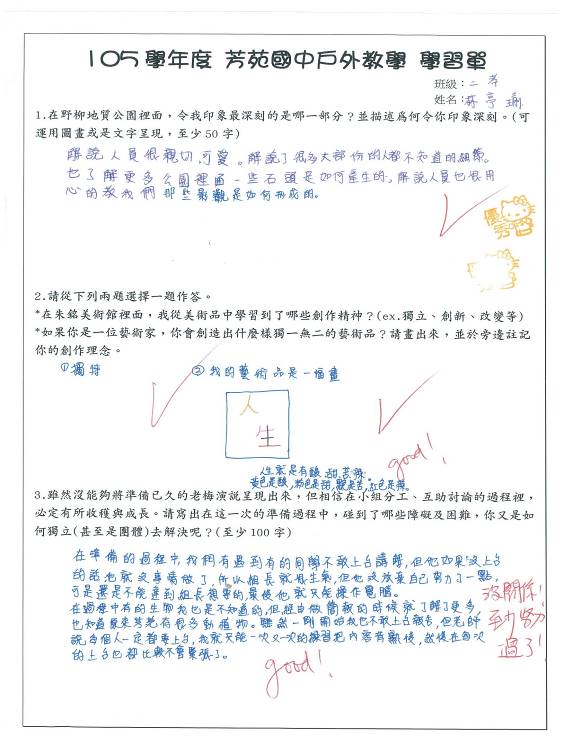 105學年度 芳苑國中戶外教學 學習單
班級：二孝
姓名：林亭
1.在野柳地質公園裡面，令我印象最深刻的是哪一部分？並描述為何令你印象深刻。(可
運用圖畫或是文字呈現，至少 50 字)
解說人員很親切,可愛。解說了很多大部份的人都不知道的細節。
也了解更多公園裡面一些石頭是如何產生的,解說人員也很用
心的教我們那些景觀是如何形成的。
優秀
2.請從下列兩題選擇一題作答。
*在朱銘美術館裡面，我從美術品中學習到了哪些創作精神？(ex.獨立、創新、改變等)
*如果你是一位藝術家，你會創造出什麼樣獨一無二的藝術品？請畫出來，並於旁邊註記
你的創作理念。
①獨特 ②我的藝術品是一幅畫
人
生
good!
人生就是有酸甜苦辣
黃色是酸,粉色是甜,藍是苦,紅色是辣。
3.雖然沒能夠將準備已久的老梅演說呈現出來，但相信在小組分工、互助討論的過程裡，
必定有所收穫與成長。請寫出在這一次的準備過程中，碰到了哪些障礙及困難，你又是如
何獨立(甚至是團體)去解決呢？(至少 100 字)
在準備的過程中,我們有遇到有的同學不敢上台講解,但他如果沒上台
的話他就沒事情做了,所以組長就很生氣,但他沒放棄自己努力了一點,
可是還是不能達到組長想要的,最後他就只能操作電腦。
在過程中有的生物我也是不知道的,但經由做簡報的時候就了解了更多
也知道原來芳苑有很多動植物。雖然一剛開始我也不敢上台報告,但老師
說每個人一定都要上台,我就只能一次又一次的練習把內容有順後,然後在每次
的上台也都比較不會緊張了。
沒關係!
至少努力
過了!
good!